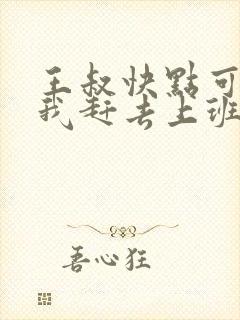 王叔快點可
我赶去上班
吾心狂